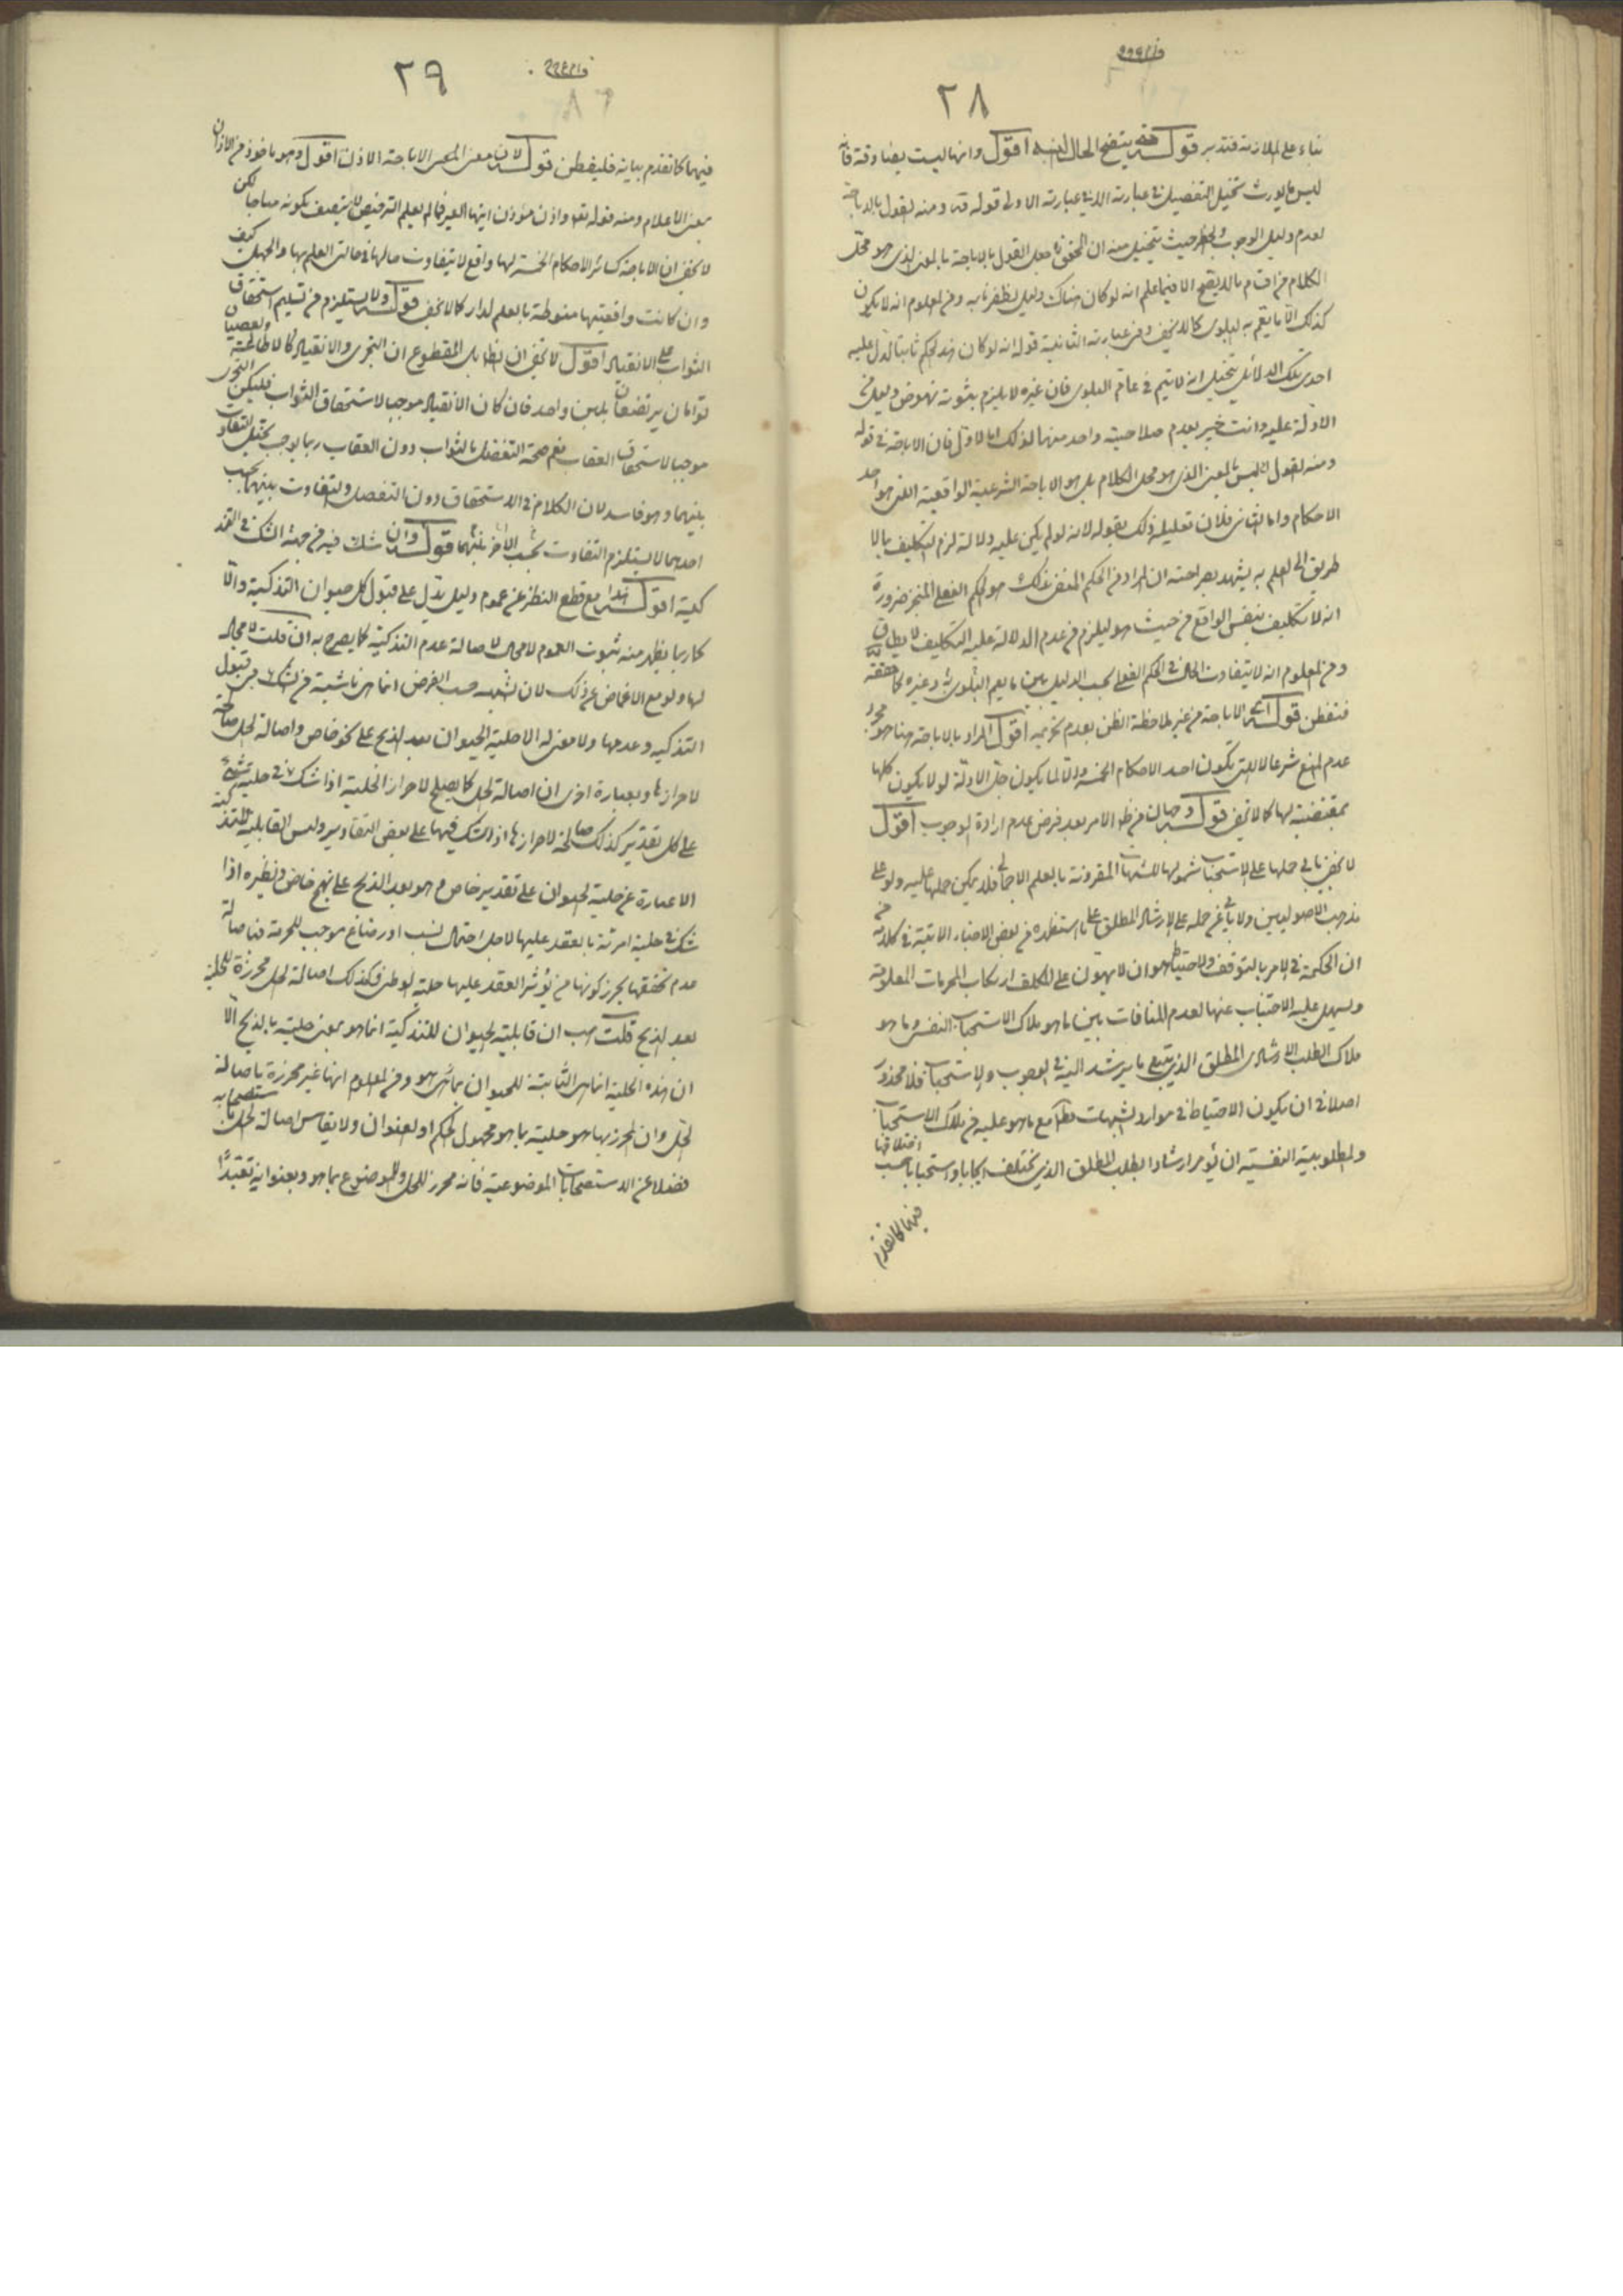 ٢٨
بناء على الملازمة فتدبر قوله فمنه يتضح الحال اقول وانها ليست بصادقة فانه
ليس مما يورث تخيل التفصيل في عبارته الا في عبارته الاولى قوله قده ومنه القول بالاباحة
لعدم دليل الوجوب والحظر حيث يتخيل منه ان المحقق جعل القول بالاباحة بالمعنى الذي هو محل
الكلام من اقسام ما لا يصح الا فيما علم انه لو كان هناك دليل لظفر به ومن المعلوم انه لا يكون
كذلك الا ما يعم به البلوى كما لا يخفى ومن عبارته الثانية قوله انه لو كان هذا الحكم ثابتا لدل عليه
احدى تلك الدلائل يتخيل انه لا يتم في عام البلوى فان غيره لا يلزم بثبوته نهوض دليل من
الادلة عليه وانت خبير بعدم صلاحية واحد منهما لذلك اما الاول فان الاباحة في قوله
ومنه القول ليس بالمعنى الذي هو محل الكلام بل هو الاباحة الشرعية الواقعية التي هو احد
الاحكام واما الثاني فلان تعليل ذلك بقوله لانه لو لم يكن عليه دلالة لزم التكليف بما لا
طريق الى العلم به يشهد بصراحته ان المراد من الحكم المنفي هناك هو الحكم الفعلي المنجز ضرورة
انه لا تكليف بنفس الواقع من حيث هو ليلزم من عدم الدلالة عليه التكليف بما لا يطاق
ومن المعلوم انه لا يتفاوت الحال في الحكم الفعلي بحسب الدليل بين ما يعم البلوى به وغيره كما حققه
فتفطن قوله الاباحة من غير ملاحظة الظن بعدم تحريمه اقول المراد بالاباحة هنا هو مجرد
عدم المنع شرعا لا التي تكون احد الاحكام الخمسة والا لما يكون جل الادلة لو لا يكون كلها
بمقتضية لها كما لا يخفى قوله من ظهور الامر بعد فرض عدم ارادة الوجوب اقول
لا يخفى ما في حملها على الاستحباب شمولها للشبهات المقرونة بالعلم الاجمالي فلا يمكن حملها عليه ولو على
مذهب الاصوليين ولا يأبى عن حمله على الارشاد المطلق على ما استظهره من بعض الاخبار الاتية في كلامه من
ان الحكمة في الامر بالتوقف والاحتياط هو ان لا يهون على المكلف ارتكاب المحرمات المعلومة
ويسهل عليه الاجتناب عنها لعدم المنافات بين ما هو ملاك الاستحباب النفسي وما هو
ملاك الطلب الارشادي المطلق الذي يتبع ما يرشد اليه في الوجوب والاستحباب فلا محذور
اصلا في ان يكون الاحتياط في موارد الشبهات مطلقا مع ما هو عليه من ملاك الاستحباب
والمطلوبية النفسية ان يؤمر ارشادا بالطلب المطلق الذي يختلف ايجابا واستحبابا حسب اختلافها
فيهما كما تقدم
٢٩
فيهما كما تقدم بيانه فليفطن قوله لان معنى الاباحة الاذن اقول وهو مأخوذ من الاذن
بمعنى الاعلام ومنه قوله تعه واذن مؤذن ايتها العير فما لم يعلم الترخيص لا يتصف بكونه مباحا لكن
لا يخفى ان الاباحة كسائر الاحكام الخمسة لها واقع لا يتفاوت حالها في حالتي العلم بها والجهل كيف
وان كانت واقعيتها منوطة بالعلم لدار كما لا يخفى قوله ولا يستلزم من تسليم استحقاق
الثواب على الانقياد اقول لا يخفى ان الظاهر بل المقطوع ان التجري والانقياد كالاطاعة والعصيان
توأمان يرتضعان بلبن واحد فان كان الانقياد موجبا لاستحقاق الثواب فليكن التجري
موجبا لاستحقاق العقاب نعم صحة التفضل بالثواب دون العقاب ربما يوجب تخيل التفاوت
بينهما وهو فاسد لان الكلام في الاستحقاق دون التفضل والتفاوت بينهما بحسب
احدهما لا يستلزم التفاوت بحسب الاخر بينهما قوله وان شك فيه من جهة الشك في التذ
كية اقول هذا مع قطع النظر عن عموم دليل يدل على قبول كل حيوان التذكية والا
كما ربما يظهر منه ثبوت العموم لا مجال لاصالة عدم التذكية كما يصرح به ان قلت لا مجال
لها ولو مع الاغماض عن ذلك لان الشبهة حسب الفرض انما هي ناشئة من الشك في قبول
التذكية وعدمها ولا معنى له الا حلية الحيوان بعد الذبح على نحو خاص واصالة الحل صالحة
لاحرازها وبعبارة اخرى ان اصالة الحل كما يصلح لاحراز الحلية اذا شك في حلية شيء
على كل تقدير كذلك صالحة لاحرازها اذا شك فيها على بعض التقادير وليس القابلية للتذكية
الا عبارة عن حلية الحيوان على تقدير خاص وهو بعد الذبح على نهج خاص ونظيره اذا
شك في حلية امرئة بالعقد عليها لاجل احتمال نسب او رضاع موجب للحرمة فاصالة
عدم تحققهما يحرز كونها من يؤثر العقد عليها حلية الوطي فكذلك اصالة الحل محرزة للحلية
بعد الذبح قلت هب ان قابلية الحيوان للتذكية انما هو بمعنى حليته بالذبح الا
ان هذه الحلية انما هي الثابتة للحيوان بما هو هو ومن المعلوم انها غير محرزة باصالة
الحل وان المحرز بها هو حليته بما هو مجهول الحكم او العنوان ولا يقاس اصالة الحل باستصحابه
فضلا عن الاستصحابات الموضوعية فانه محرز للحل وللموضوع بما هو وبعنوانه تعبدًا